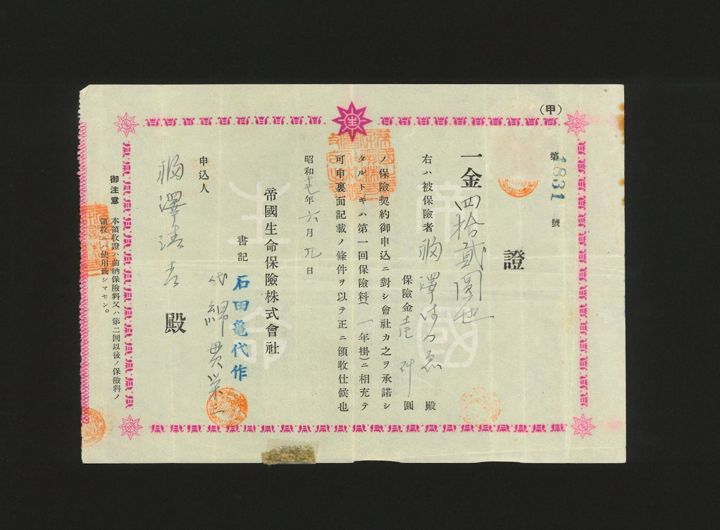 (甲)
第1831號
證
一金四拾貳圓也
右ハ被保險者 殿
保險金壹阡圓
ノ保險契約御申込ニ對シ會社カ之ヲ承諾シ
タルトキハ第一回保險料(一年掛)ニ相充テ
可申裏面記載ノ條件ヲ以テ正ニ領收仕候也
昭和 年六月九日
帝國生命保險株式會社
書記 石田龜代作
申込人
殿
御注意 本領收證ハ前納保險料又ハ第二回以後ノ保險料ノ
領收ニハ使用致シマセン。
帝國
生命